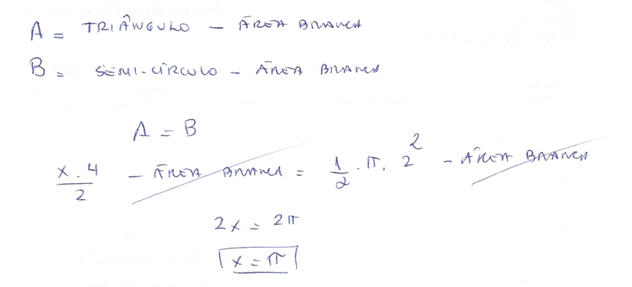 A = TRIÂNGULO - ÁREA BRANCA
B = SEMI-CÍRCULO - ÁREA BRANCA
A = B
x . 4 / 2 - ÁREA BRANCA = 1/2 . π . 2² - ÁREA BRANCA
2x = 2π
x = π